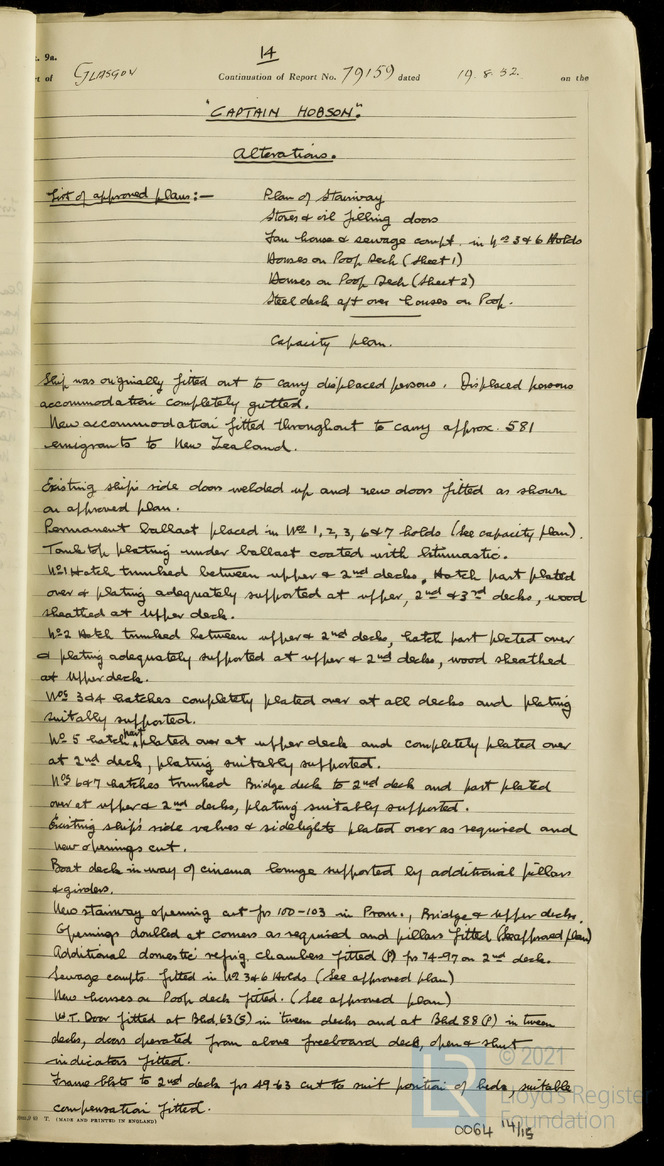 t. 9a.
14
rt of GLASGOW Continuation of Report No. 79159 dated 19.8.52. on the
"CAPTAIN HOBSON".
Alterations.
List of approved plans:— Plan of Stairway
Stores & oil filling doors
Fan house & sewage compt. in Nos 3 & 6 Holds
Houses on Poop Deck (Sheet 1)
Houses on Poop Deck (Sheet 2)
Steel deck aft over houses on Poop.
Capacity plan.
Ship was originally fitted out to carry displaced persons. Displaced persons
accommodation completely gutted.
New accommodation fitted throughout to carry approx. 581
emigrants to New Zealand.
Existing ship's side doors welded up and new doors fitted as shown
on approved plan.
Permanent ballast placed in Nos 1, 2, 3, 6 & 7 holds (See capacity plan).
Tank top plating under ballast coated with bitumastic.
No 1 Hatch trunked between upper & 2nd decks, Hatch part plated
over & plating adequately supported at upper, 2nd & 3rd decks, wood
sheathed at upper deck.
No 2 Hatch trunked between upper & 2nd decks, hatch part plated over
& plating adequately supported at upper & 2nd decks, wood sheathed
at upper deck.
Nos 3 & 4 hatches completely plated over at all decks and plating
suitably supported.
No 5 hatch part plated over at upper deck and completely plated over
at 2nd deck, plating suitably supported.
Nos 6 & 7 hatches trunked Bridge deck to 2nd deck and part plated
over at upper & 2nd decks, plating suitably supported.
Existing ship's side valves & sidelights plated over as required and
new openings cut.
Boat deck in way of cinema lounge supported by additional pillars
& girders.
New stairway opening cut frs 100-103 in Prom., Bridge & upper decks.
Openings doubled at corners as required and pillars fitted (See approved plan)
Additional domestic refrig. chambers fitted (P) frs 74-97 on 2nd deck.
Sewage compts. fitted in Nos 3 & 6 Holds (See approved plan)
New houses on Poop deck fitted. (See approved plan)
W.T. Door fitted at Bhd. 63 (S) in tween decks and at Bhd 88 (P) in tween
decks, doors operated from above freeboard deck, open & shut
indicators fitted.
Frame bkts to 2nd deck frs 49-63 cut to suit position of beds, suitable
compensation fitted.
T. (MADE AND PRINTED IN ENGLAND)
LR © 2021
Lloyd's Register
Foundation
0064 14/15